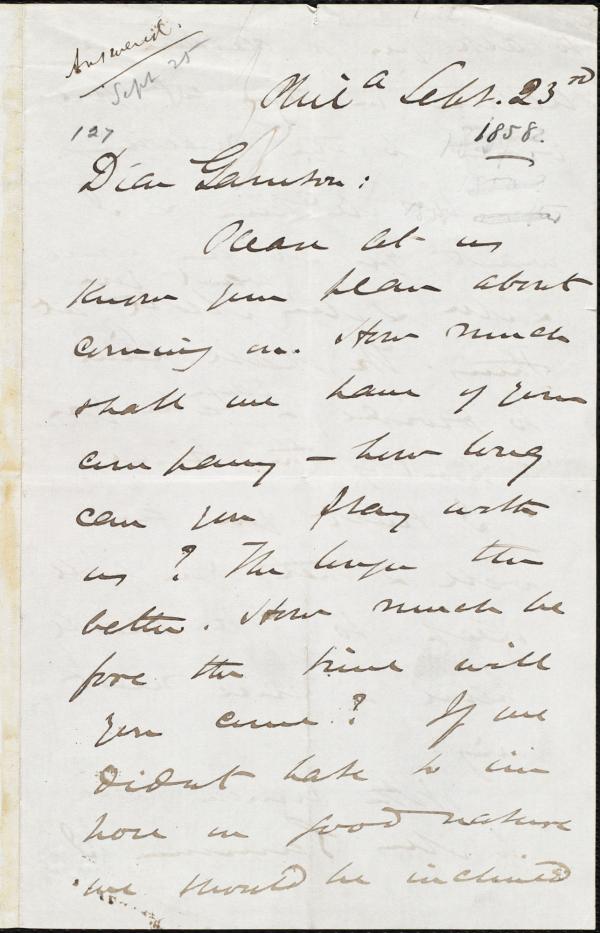 Answered.
Sept 25
Phil^a Sept. 23^rd
127
1858.
Dear Garrison:
Please let us
know your plan about
coming on. How much
shall we have of your
company – how long
can you stay with
us? The longer the
better. How much be
fore the time will
you come? If we
didnt hate to im
pose on good nature
we should be inclined